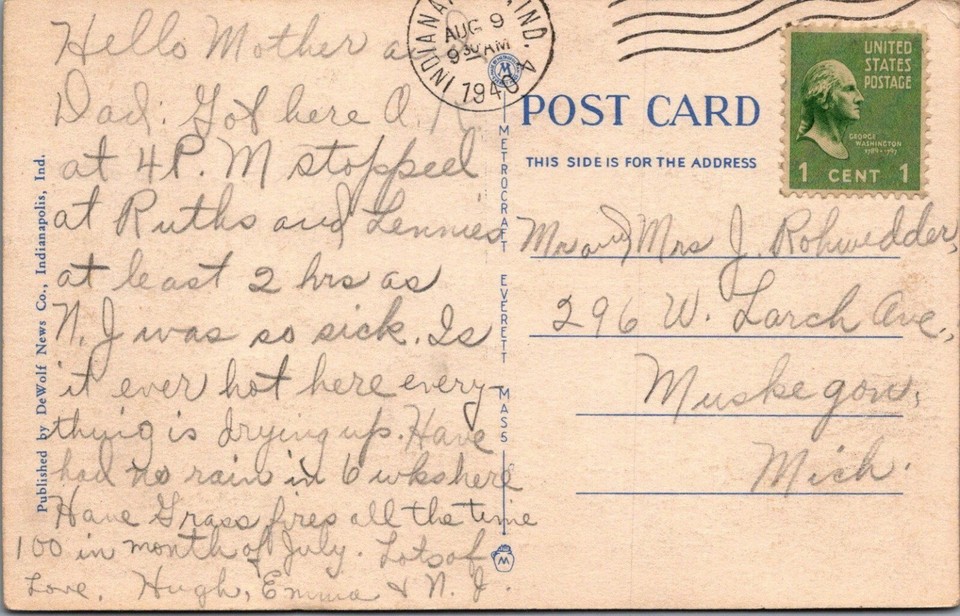 Hello Mother a
Dad: Got here O.K
at 4 P. M stopped
at Ruths and Lennies
at least 2 hrs as
N. J was so sick. Is
it ever hot here every-
thing is drying up. Have
had no rain in 6 wks here
Have Grass fires all the time
100 in month of July. Lots of
Love, Hugh, Emma & N. J.
Published by DeWolf News Co., Indianapolis, Ind.
METROCRAFT EVERETT MASS
M
INDIANA , IND. 4
AUG 9
9 30 AM
1940
M
POST CARD
THIS SIDE IS FOR THE ADDRESS
UNITED
STATES
POSTAGE
GEORGE
WASHINGTON
1789-1797
1 CENT 1
Mr and Mrs J. Rohwedder,
296 W. Larch Ave.,
Muskegon,
Mich.